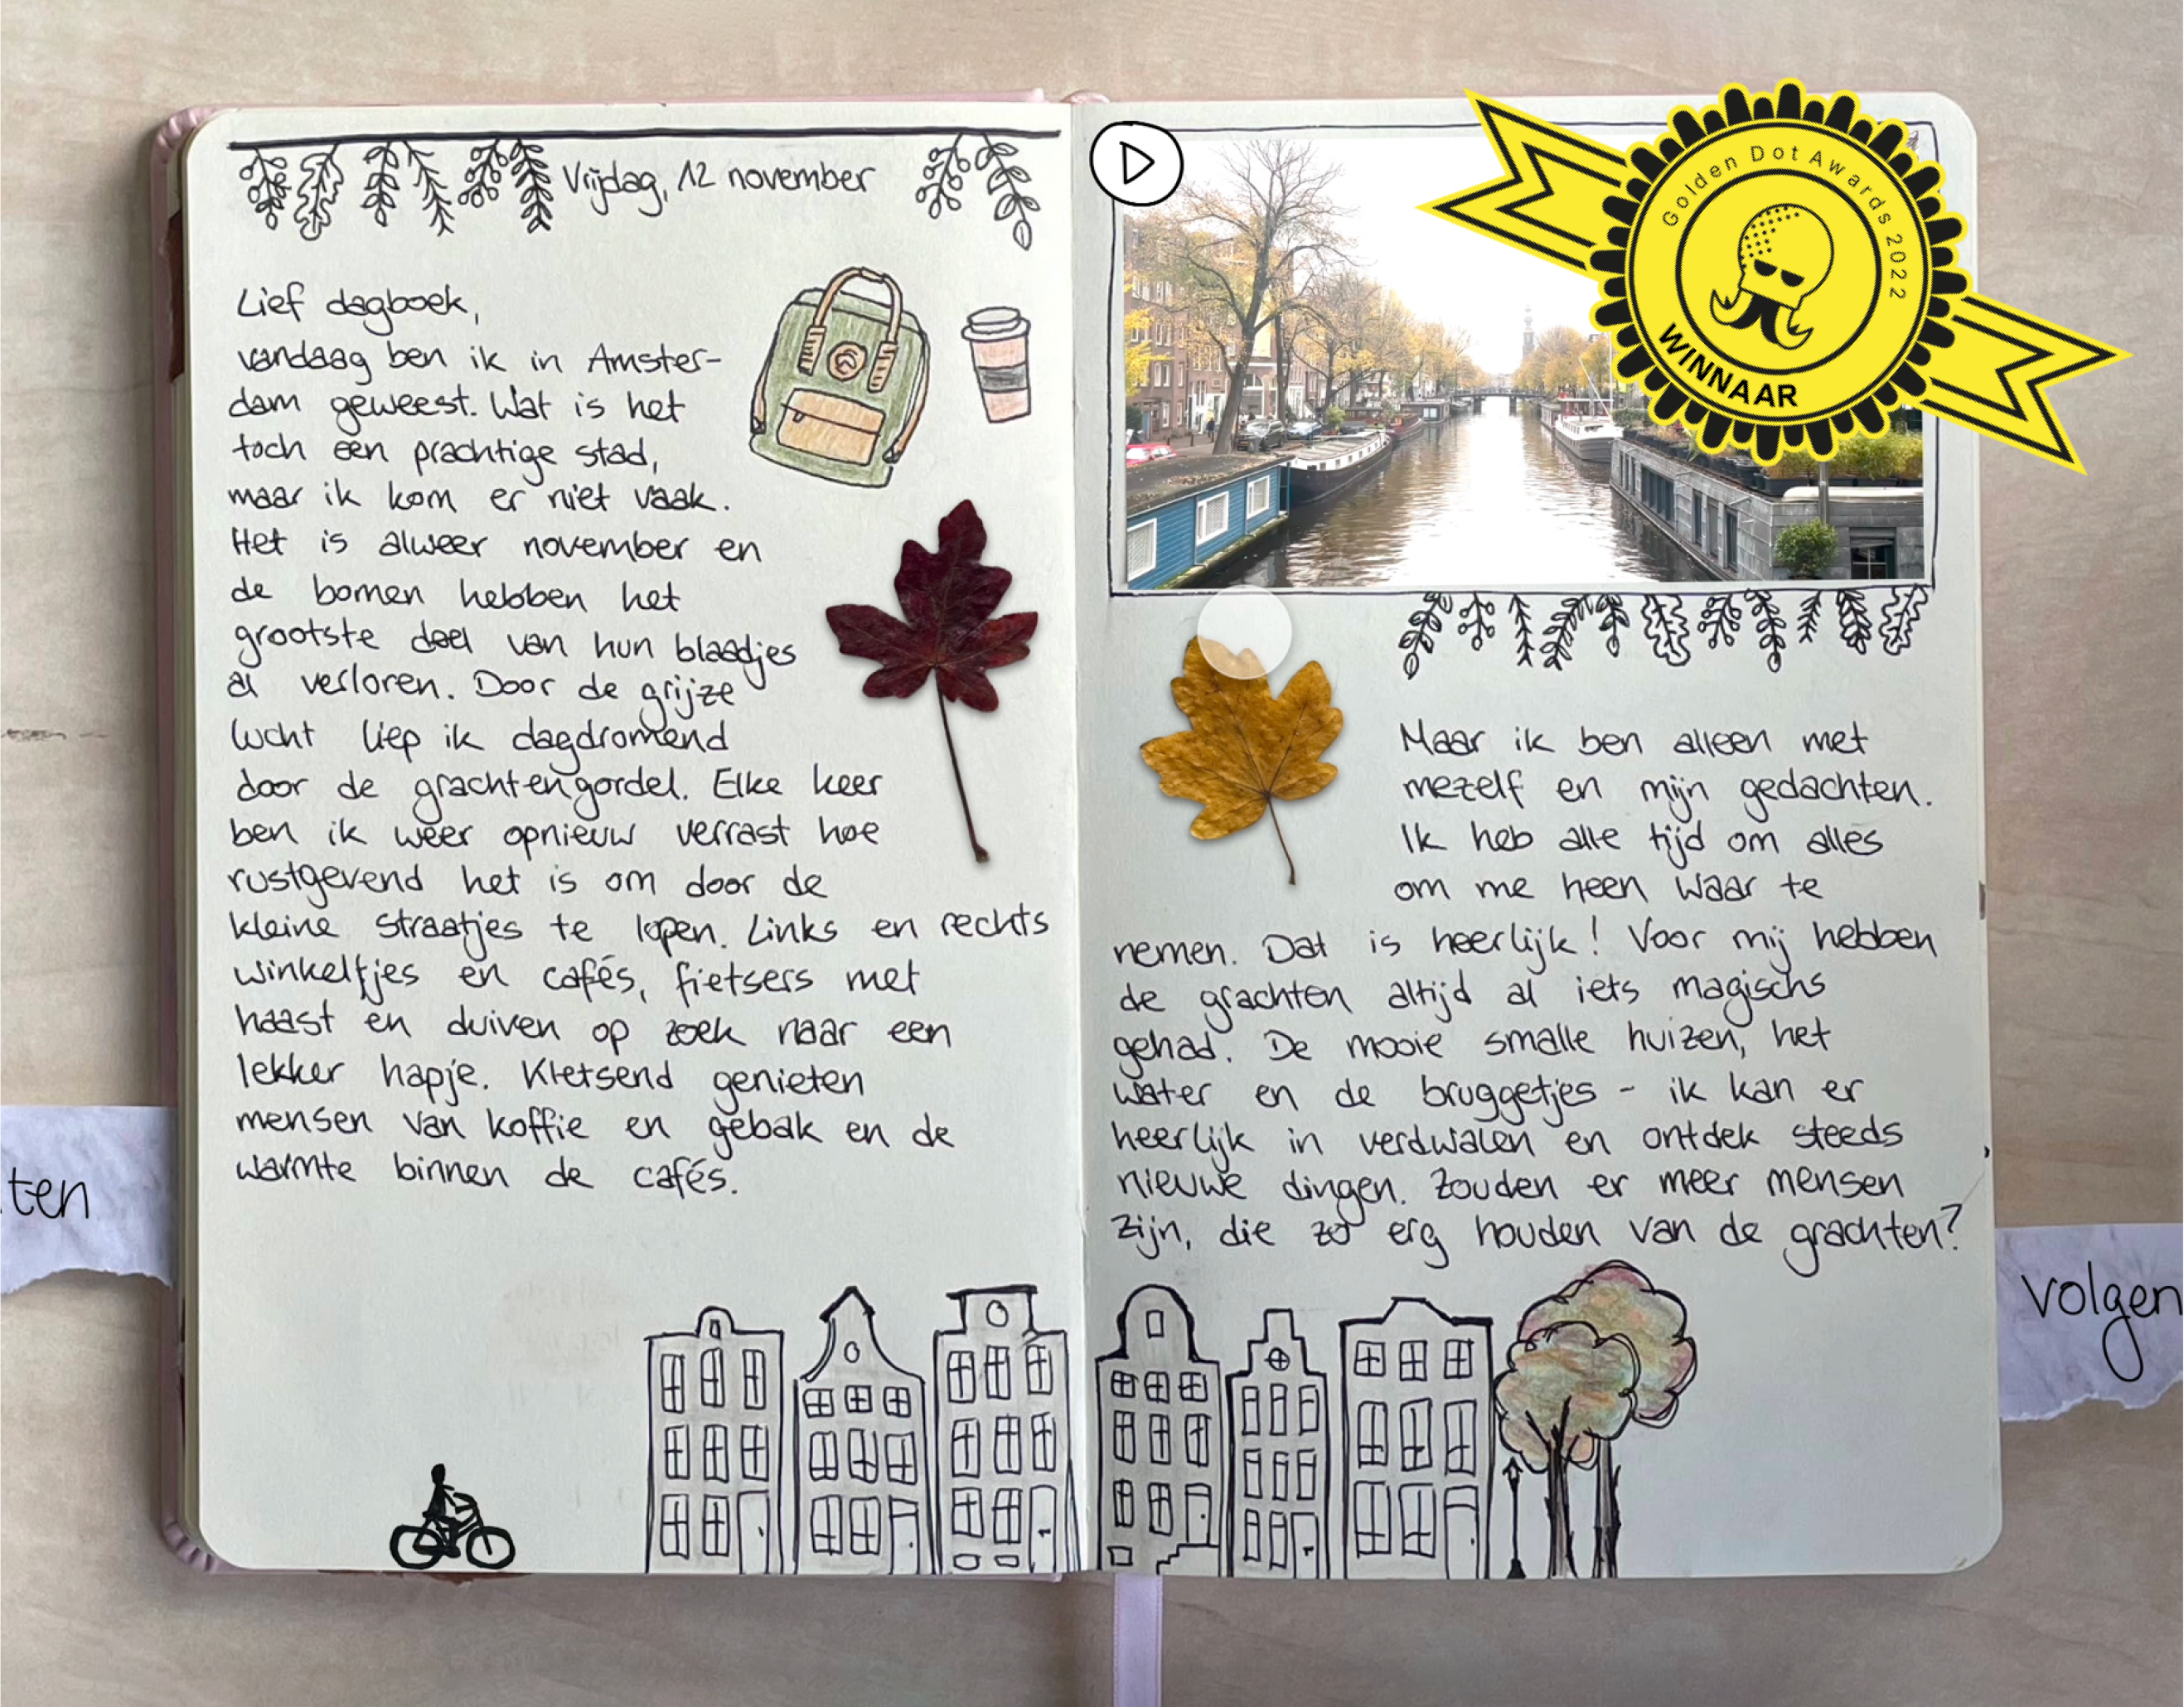 Vrijdag, 12 november
Lief dagboek,
vandaag ben ik in Amster-
dam geweest. Wat is het
toch een prachtige stad,
maar ik kom er niet vaak.
Het is alweer november en
de bomen hebben het
grootste deel van hun blaadjes
al verloren. Door de grijze
lucht liep ik dagdromend
door de grachtengordel. Elke keer
ben ik weer opnieuw verrast hoe
rustgevend het is om door de
kleine straatjes te lopen. Links en rechts
winkeltjes en cafés, fietsers met
haast en duiven op zoek naar een
lekker hapje. Kletsend genieten
mensen van koffie en gebak en de
warmte binnen de cafés.
ten
Golden Dot Awards 2022
WINNAAR
Maar ik ben alleen met
mezelf en mijn gedachten.
Ik heb alle tijd om alles
om me heen waar te
nemen. Dat is heerlijk! Voor mij hebben
de grachten altijd al iets magischs
gehad. De mooie smalle huizen, het
water en de bruggetjes - ik kan er
heerlijk in verdwalen en ontdek steeds
nieuwe dingen. Zouden er meer mensen
zijn, die zo erg houden van de grachten?
volgen